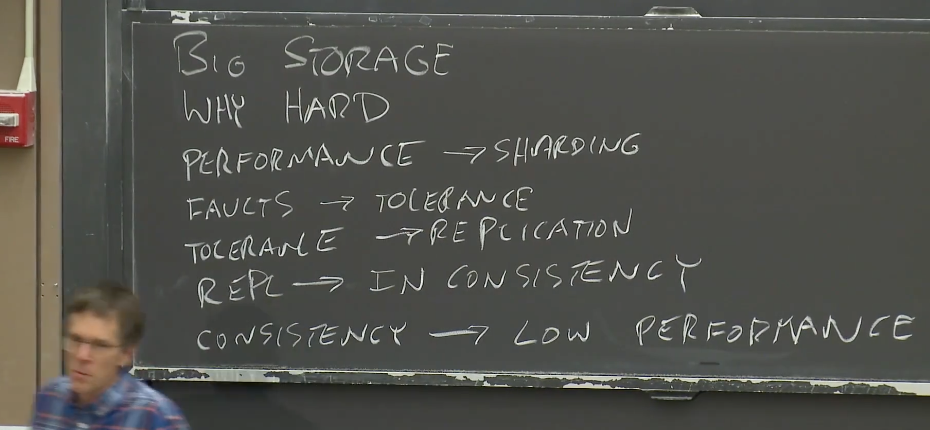 BIG STORAGE
WHY HARD
PERFORMANCE → SHARDING
FAULTS → TOLERANCE
TOLERANCE → REPLICATION
REPL → IN CONSISTENCY
CONSISTENCY → LOW PERFORMANCE
FIRE